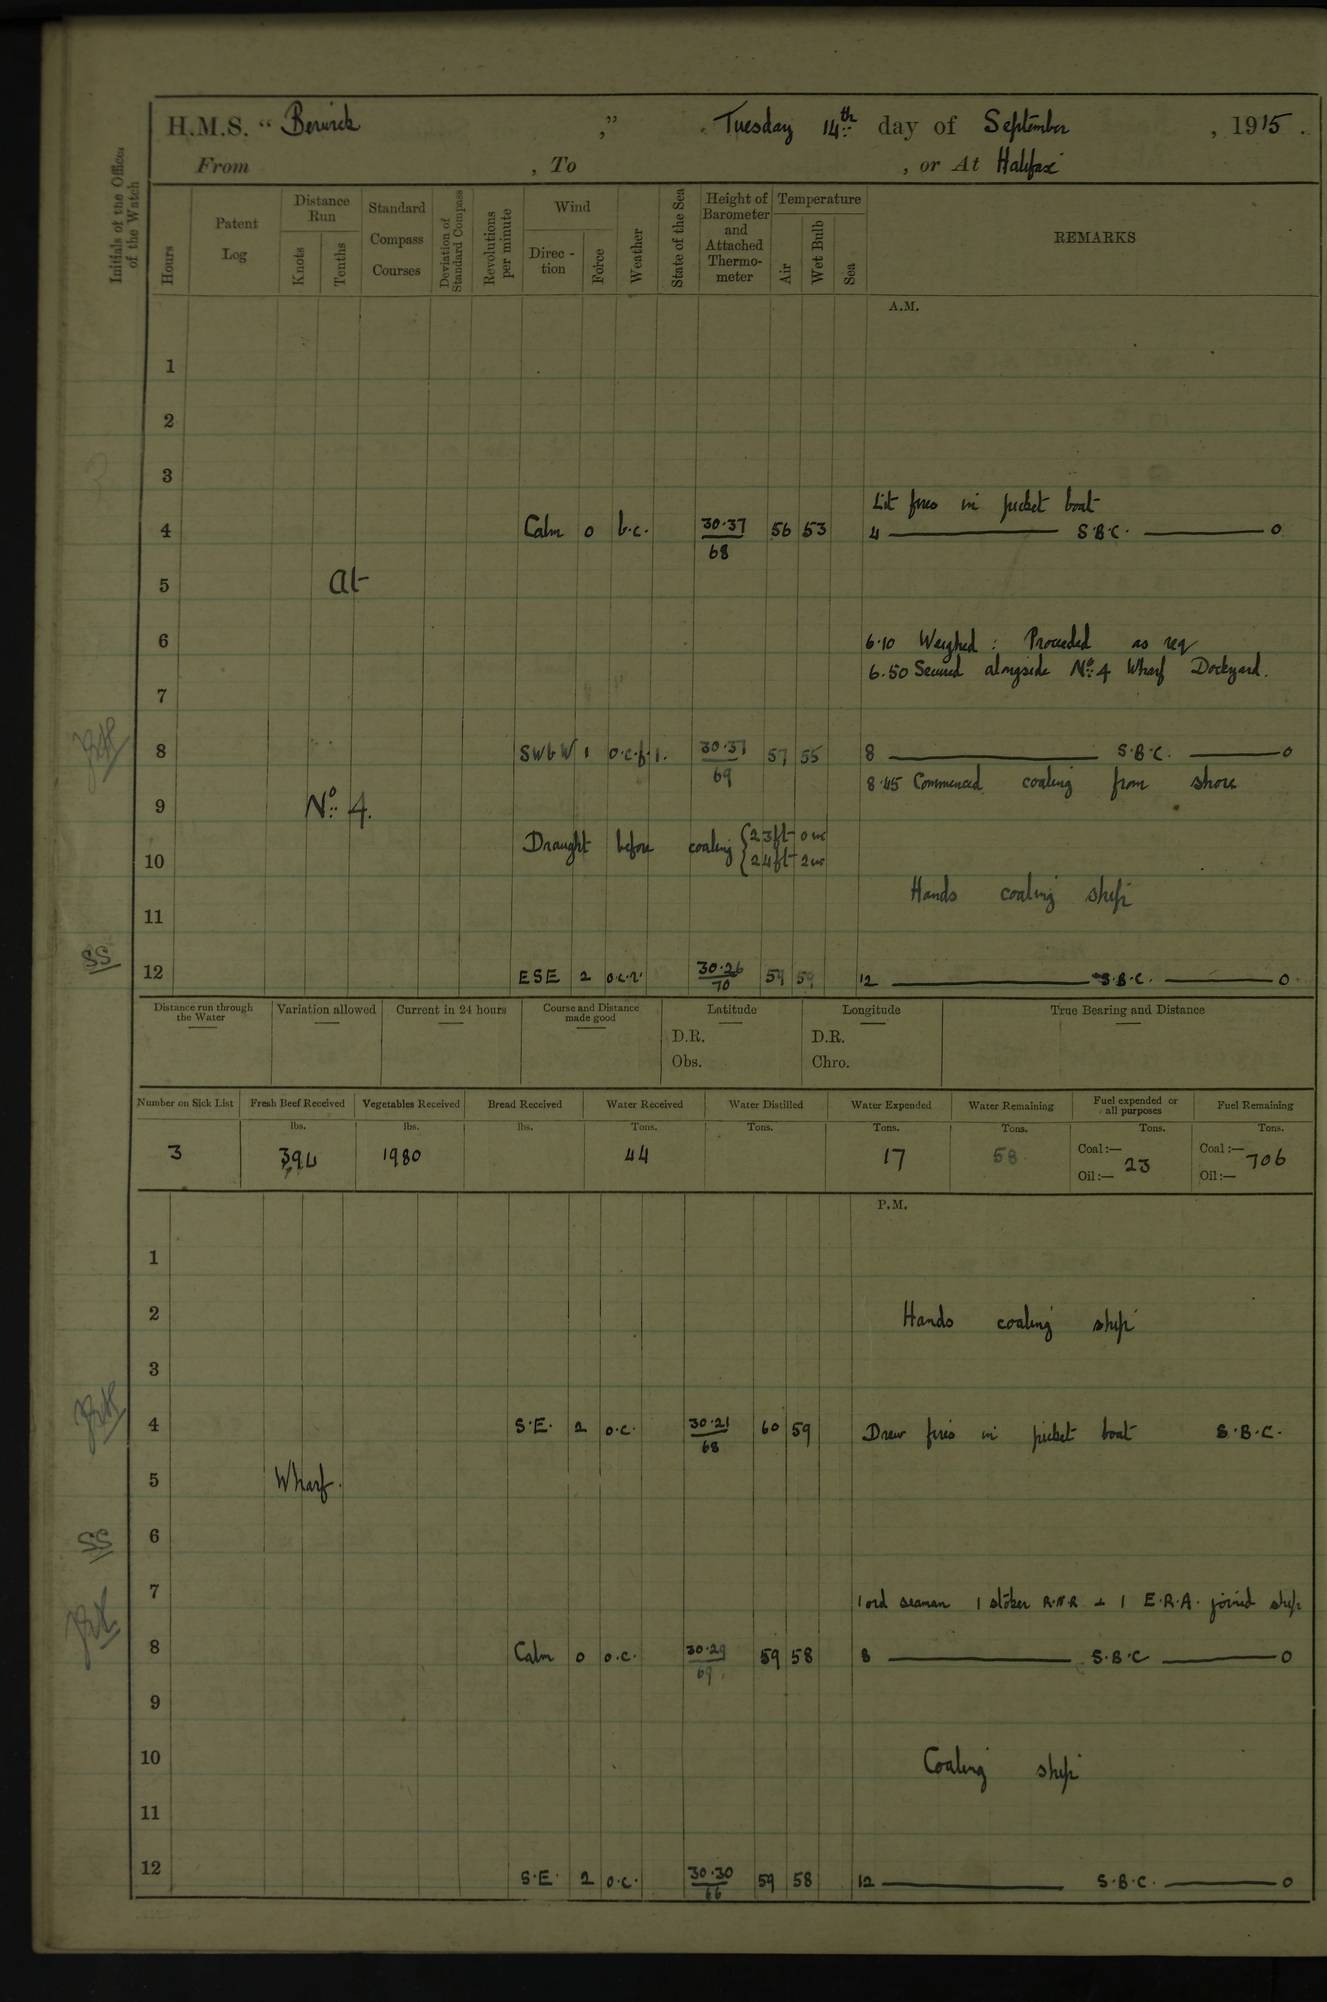 H.M.S. "Berwick ," Tuesday 14th day of September, 1915.
From , To , or At Halifax
Initials of the Officer of the Watch
Hours
Patent Log
Distance Run
Knots
Tenths
Standard Compass Courses
Deviation of Standard Compass
Revolutions per minute
Wind
Direc-tion
Force
Weather
State of the Sea
Height of Barometer and Attached Thermo-meter
Temperature
Air
Wet Bulb
Sea
REMARKS
A.M.
1
2
3
Lit fires in picket boat
4 Calm 0 b.c. 30.37 56 53 4 S.B.C. 0
68
5 At
6 6.10 Weighed : Proceeded as req
6.50 Secured alongside No 4 Wharf Dockyard.
7
8 SWbW 1 o.c.f. 30.37 57 55 8 S.B.C. 0
69
8.45 Commenced coaling from shore
9 No 4.
Draught before coaling {23ft 0 ins
10 {24ft 2 ins
Hands coaling ship
11
SS
12 ESE 2 o.c.r. 30.26 59 59 12 S.B.C. 0
70
Distance run through the Water
Variation allowed
Current in 24 hours
Course and Distance made good
Latitude
D.R.
Obs.
Longitude
D.R.
Chro.
True Bearing and Distance
Number on Sick List Fresh Beef Received Vegetables Received Bread Received Water Received Water Distilled Water Expended Water Remaining Fuel expended or all purposes Fuel Remaining
lbs. lbs. lbs. Tons. Tons. Tons. Tons. Tons. Tons.
3 394 1980 44 17 58 Coal:— 23 Coal:— 706
Oil:— Oil:—
P.M.
1
2 Hands coaling ship
3
4 S.E. 2 o.c. 30.21 60 59 Drew fires in picket boat S.B.C.
68
5 Wharf.
6
SS
7 1 ord seaman 1 stoker R.N.R + 1 E.R.A. joined ship
8 Calm 0 o.c. 30.29 59 58 8 S.B.C 0
69
9
10 Coaling ship
11
12 S.E. 2 o.c. 30.30 59 58 12 S.B.C. 0
66